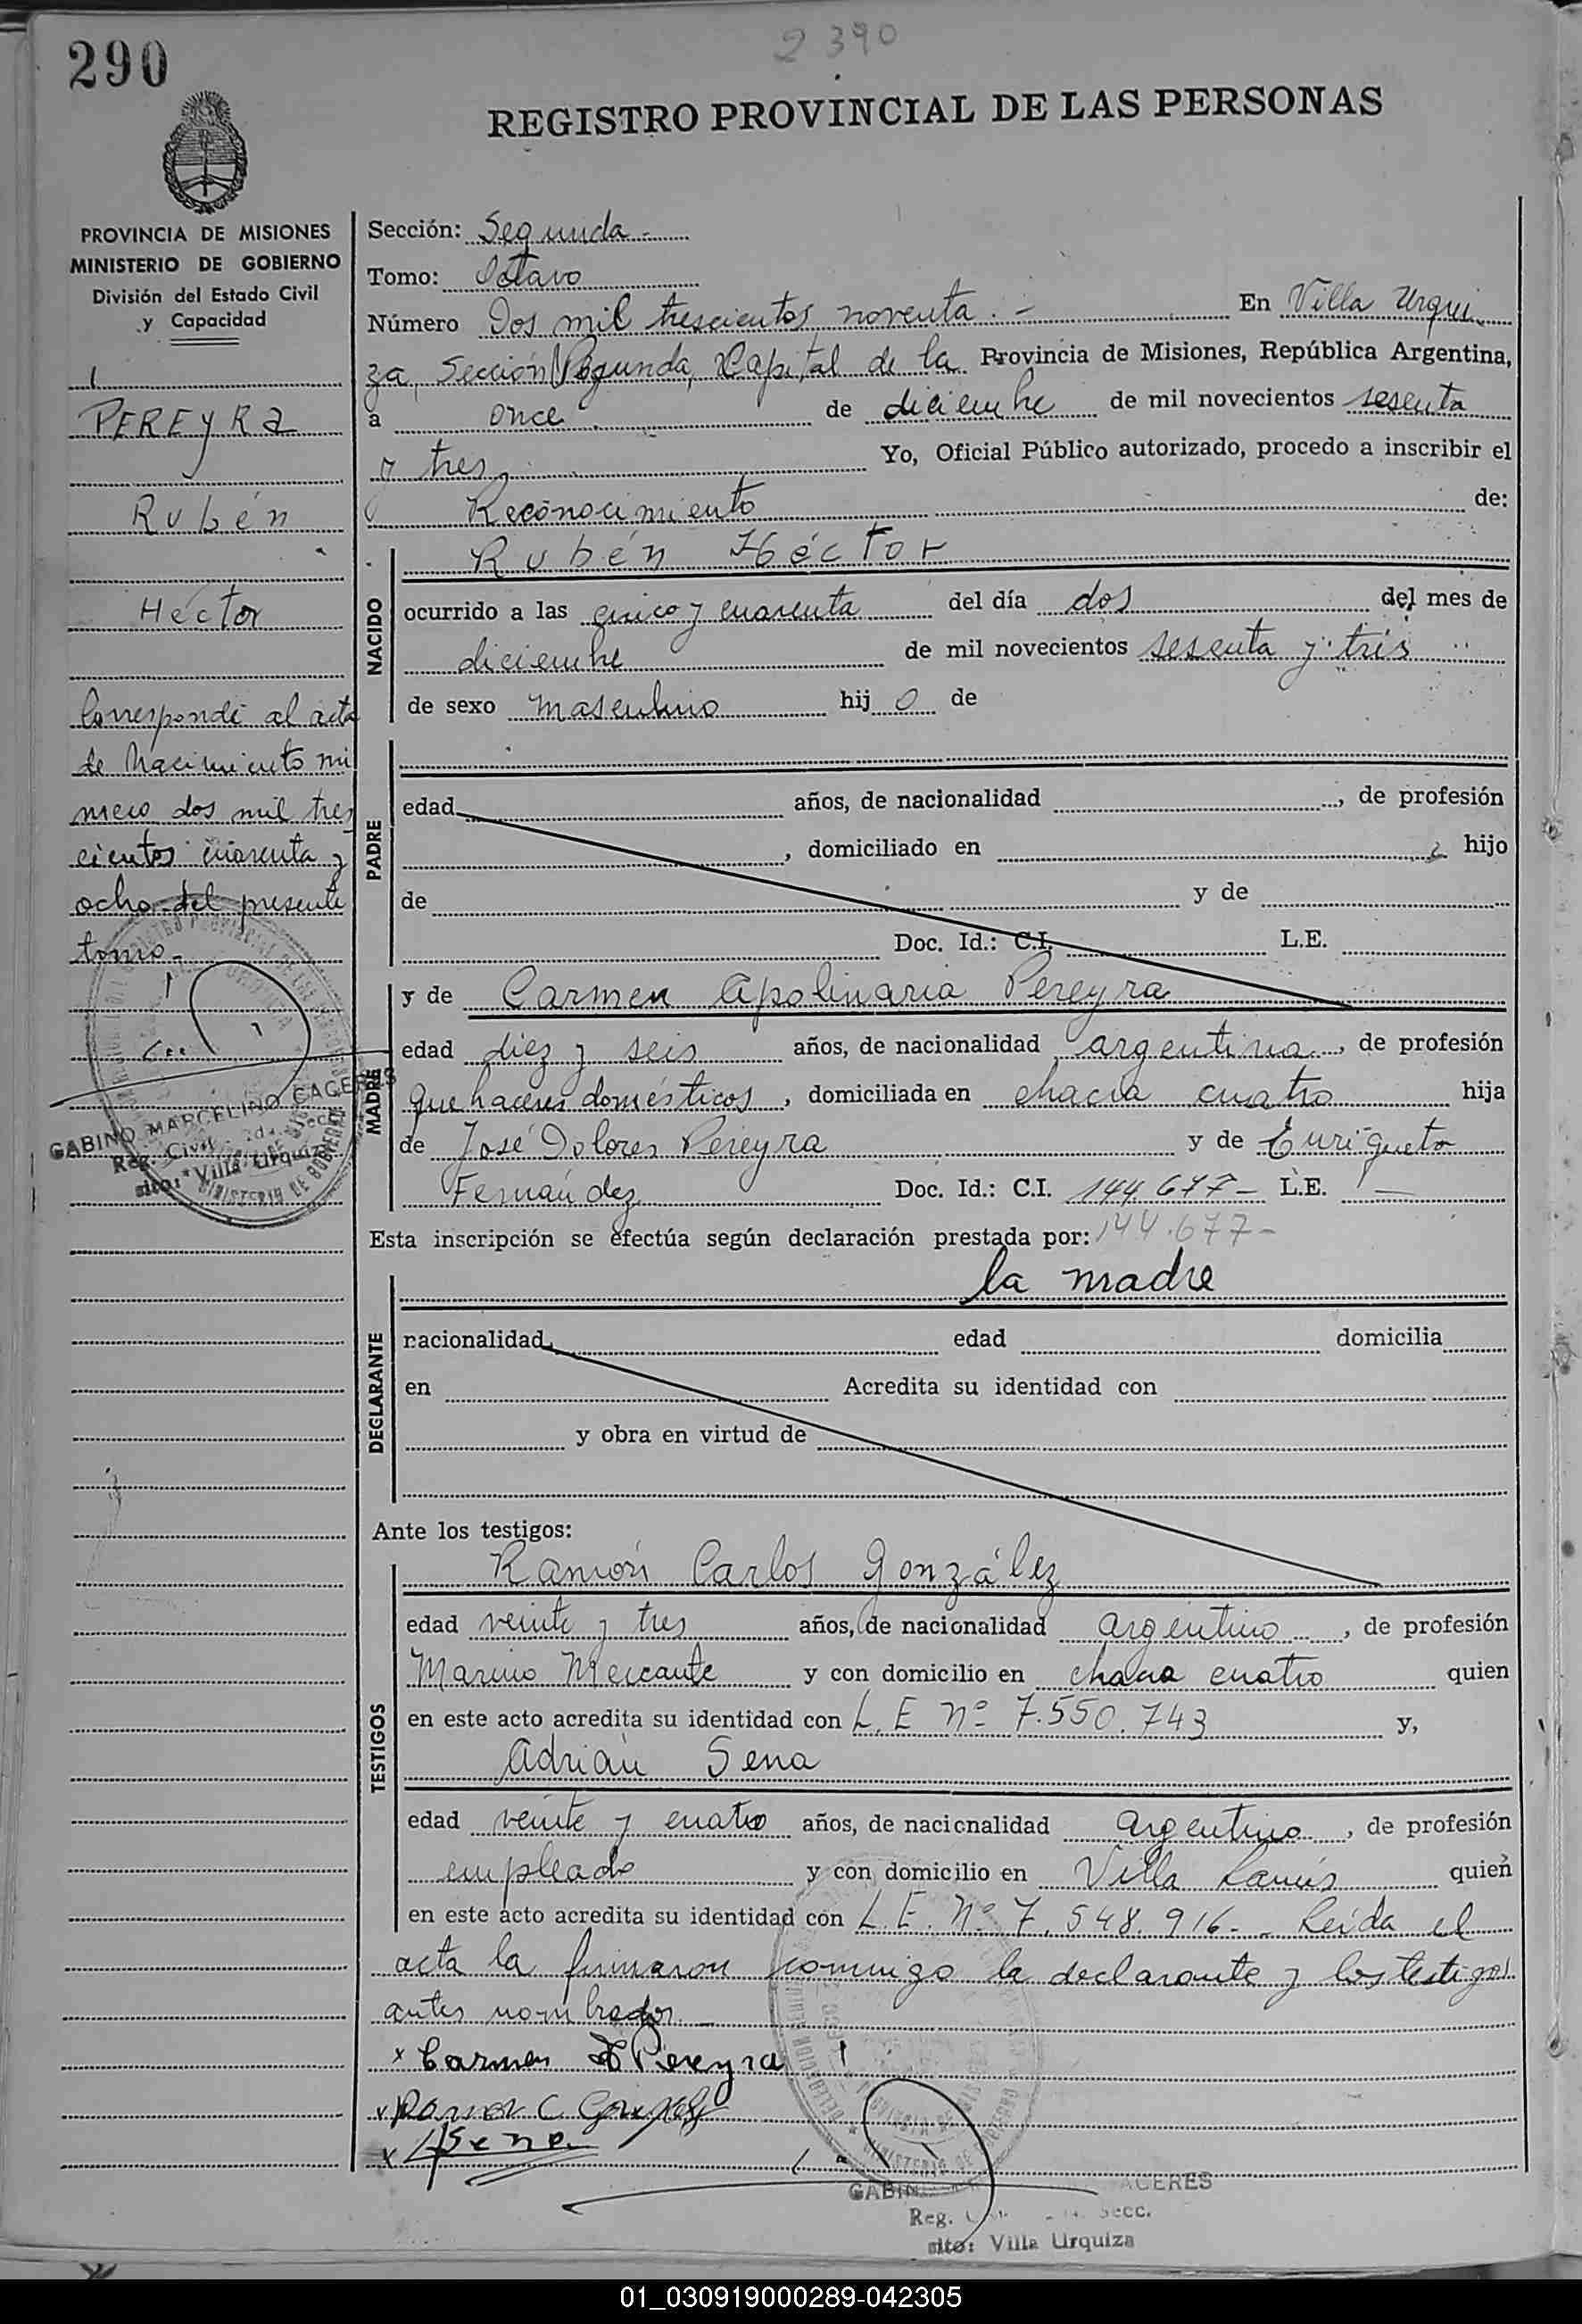 290
2390
REGISTRO PROVINCIAL DE LAS PERSONAS
PROVINCIA DE MISIONES
MINISTERIO DE GOBIERNO
División del Estado Civil
y Capacidad
PEREYRA
Rubén
Hector
Corresponde al acta
de Nacimiento nú
mero dos mil tres
cientos cuarenta y
ocho del presente
tomo.-
GABINO MARCELINO CACERES
Reg. Civil 2da. Secc.
sito: Villa Urquiza
Sección: Segunda.-
Tomo: Octavo
Número Dos mil trescientos noventa.- En Villa Urqui
za, Sección Segunda, Capital de la Provincia de Misiones, República Argentina,
a once de diciembre de mil novecientos sesenta
y tres Yo, Oficial Público autorizado, procedo a inscribir el
Reconocimiento de:
NACIDO
Rubén Héctor
ocurrido a las cinco y cuarenta del día dos del mes de
diciembre de mil novecientos sesenta y tres
de sexo masculino hijo de
PADRE
edad años, de nacionalidad , de profesión
, domiciliado en hijo
de y de
Doc. Id.: C.I. L.E.
MADRE
y de Carmen Apolinaria Pereyra
edad diez y seis años, de nacionalidad argentina, de profesión
quehaceres domésticos, domiciliada en chacra cuatro hija
de José Dolores Pereyra y de Enriqueta
Fernández Doc. Id.: C.I. 144.677- L.E. -
Esta inscripción se efectúa según declaración prestada por: 144.677-
la madre
DECLARANTE
nacionalidad edad domicilia
en Acredita su identidad con
y obra en virtud de
Ante los testigos:
TESTIGOS
Ramón Carlos González
edad veinte y tres años, de nacionalidad argentino, de profesión
Marino Mercante y con domicilio en chacra cuatro quien
en este acto acredita su identidad con L.E Nº 7.550.743 y,
Adrián Sena
edad veinte y cuatro años, de nacionalidad argentino, de profesión
empleado y con domicilio en Villa Lanús quien
en este acto acredita su identidad con L.E. Nº 7.548.916.- Leída el
acta la firmaron conmigo la declarante y los testigos
antes nombrados.-
x Carmen A Pereyra
x Ramon C Gonzalez
x A Sena
GABIN ACERES
Reg. Secc.
sito: Villa Urquiza
01_030919000289-042305